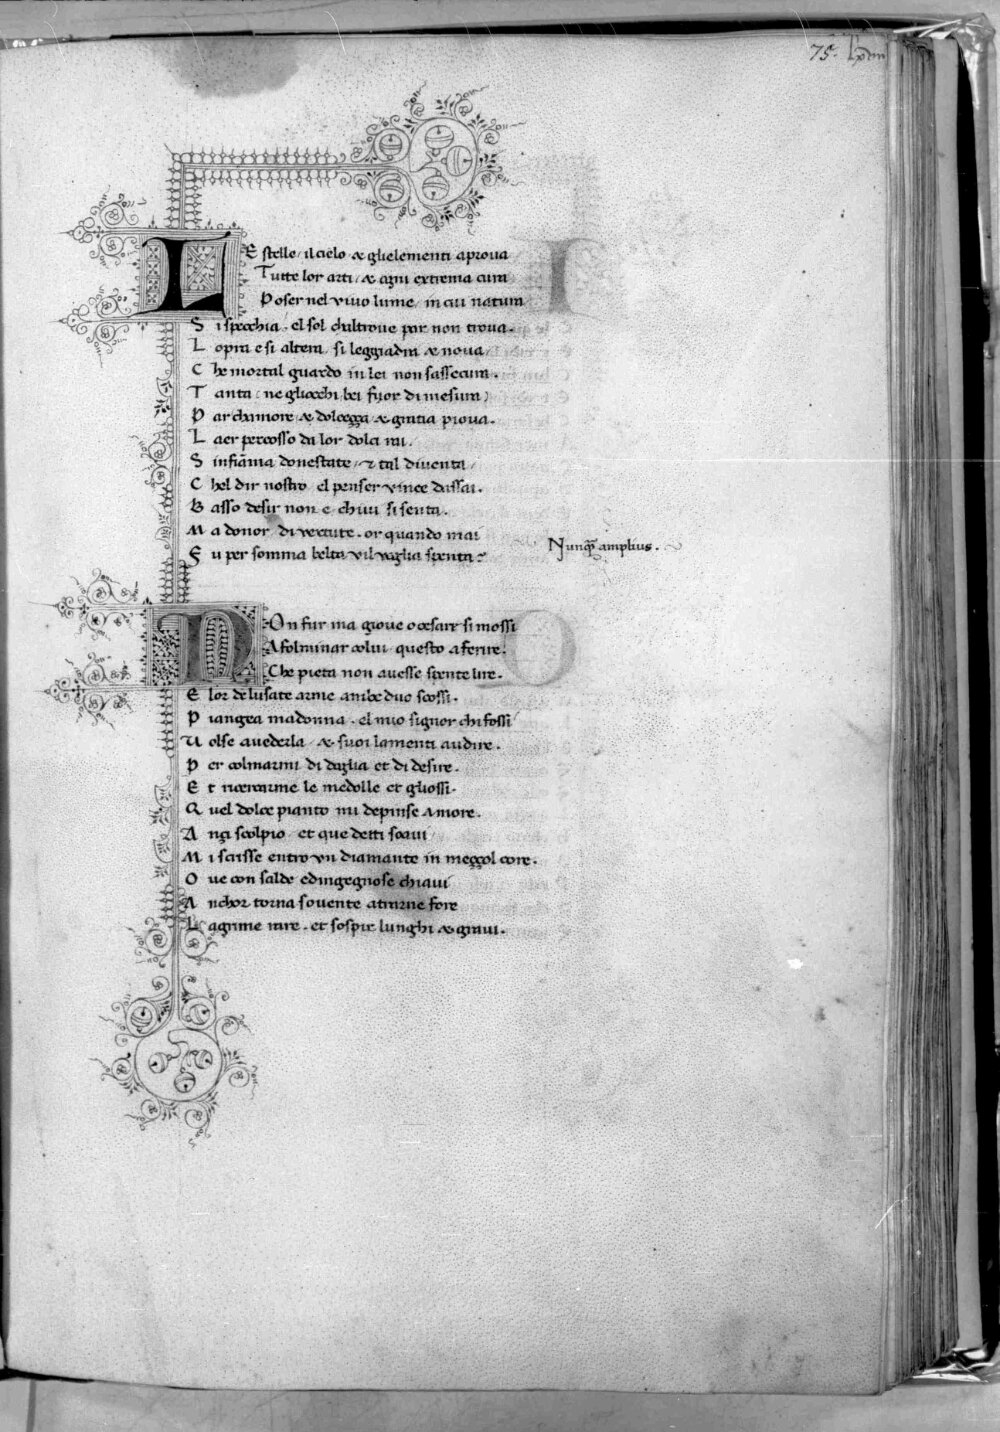 75. lxxiii
LE stelle / il cielo & gli elementi a prova
Tutte lor arti / & ogni extrema cura
Poser nel vivo lume / in cui natura
Si specchia / el sol chaltrove par non trova.
Lopra e si altera / si leggiadra & nova /
Che mortal guardo in lei non sassecura.
Tanta / ne gliocchi bei fuor di mesura /
Par chamore & dolcezza & gratia piova.
Laer percosso da lor dolci rai.
Sinfiāma donestate / & tal diventa /
Chel dir nostro / el penser vince dassai.
Basso desir non e chivi si senta.
Ma donor / di vertute. or quando mai
Fu per somma belta vil voglia spenta?
Nunq̃ amplius.
NOn fur ma giove o cesare si mossi
A folminar colui / questo a ferire.
Che pieta non avesse spente lire.
E lor de lusate arme ambe duo scossi.
Piangea madonna. el mio signor chi fossi
Volse a vederla / & suoi lamenti audire.
Per colmarmi di doglia et di desire.
Et ricercarme le medolle et gliossi.
Quel dolce pianto mi depinse amore.
Anzi scolpio / et que detti soavi
Mi scrisse entro un diamante in mezzol core.
Ove con salde ed ingegnose chiavi
Anchor torna sovente a trarne fore
Lagrime rare. et sospir lunghi & gravi.